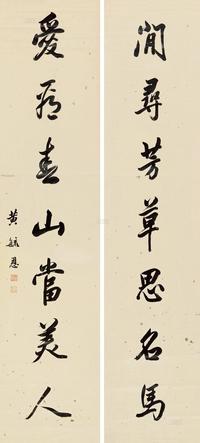 閒尋芳草思名馬
愛看春山當美人
黄毓恩